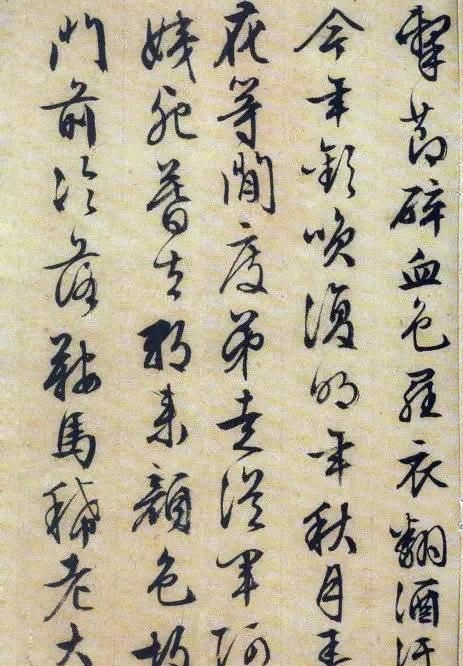 擊節碎血色羅衣翻酒汙
今年歡咲復明年秋月春
等閒度弟走從軍阿
姨死暮去朝來顏色故
門前冷落鞍馬稀老大